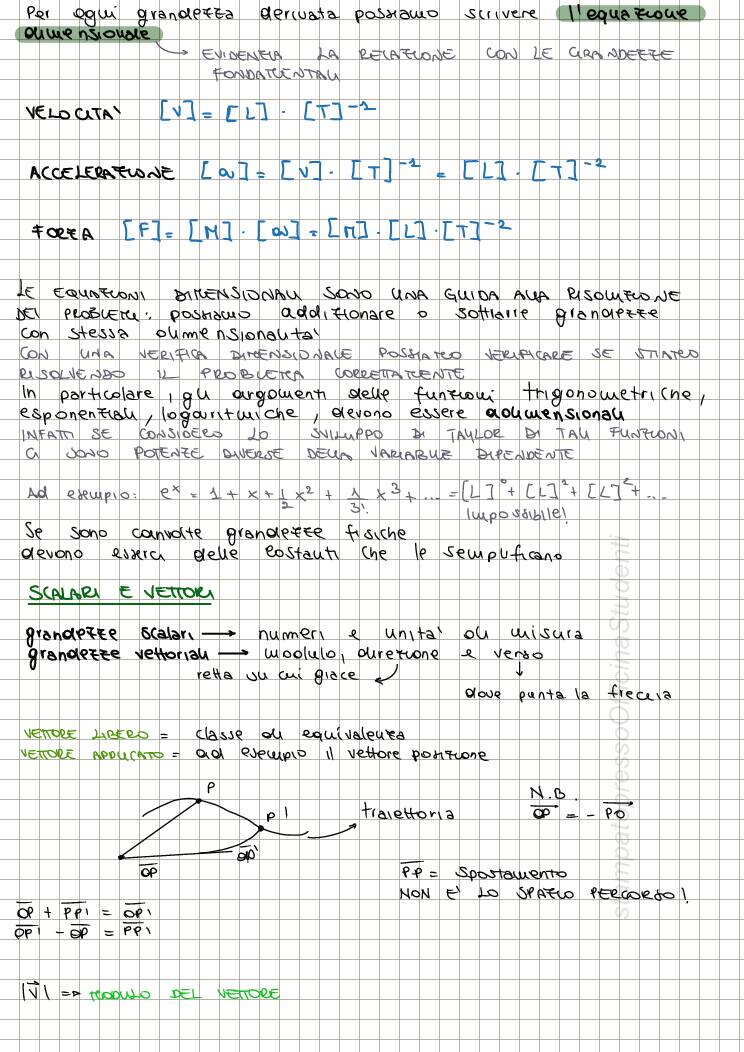 Per ogni grandezza derivata possiamo scrivere l'equazione
dimensionale
EVIDENZIA LA RELAZIONE CON LE GRANDEZZE
FONDAMENTALI
VELOCITA' [V] = [L] · [T]⁻¹
ACCELERAZIONE [a] = [V] · [T]⁻¹ = [L] · [T]⁻²
FORZA [F] = [M] · [a] = [M] · [L] · [T]⁻²
LE EQUAZIONI DIMENSIONALI SONO UNA GUIDA ALLA RISOLUZIONE
DEI PROBLEMI: possiamo addizionare o sottrarre grandezze
con stessa dimensionalità
CON UNA VERIFICA DIMENSIONALE POSSIAMO VERIFICARE SE STIAMO
RISOLVENDO IL PROBLEMA CORRETTAMENTE
In particolare, gli argomenti delle funzioni trigonometriche,
esponenziali, logaritmiche, devono essere adimensionali
INFATTI SE CONSIDERO LO SVILUPPO DI TAYLOR DI TALI FUNZIONI
CI SONO POTENZE DIVERSE DELLA VARIABILE DIPENDENTE
Ad esempio: eˣ = 1 + x + 1/2 x² + 1/3! x³ + ... = [L]⁰ + [L]¹ + [L]² + ...
Impossibile!
Se sono coinvolte grandezze fisiche
devono esserci delle costanti che le semplificano
SCALARI E VETTORI
grandezze scalari → numeri e unità di misura
grandezze vettoriali → modulo, direzione e verso
retta su cui giace
dove punta la freccia
VETTORE LIBERO = classe di equivalenza
VETTORE APPLICATO = ad esempio il vettore posizione
P
P'
traiettoria
N.B.
O̅P̅ = - P̅O̅
O̅P̅'
O̅P̅
P̅P̅ = Spostamento
NON E' LO SPAZIO PERCORSO!
O̅P̅ + P̅P̅' = O̅P̅'
O̅P̅' - O̅P̅ = P̅P̅'
|V⃗| => MODULO DEL VETTORE
stampatopressoOfficinaStudenti